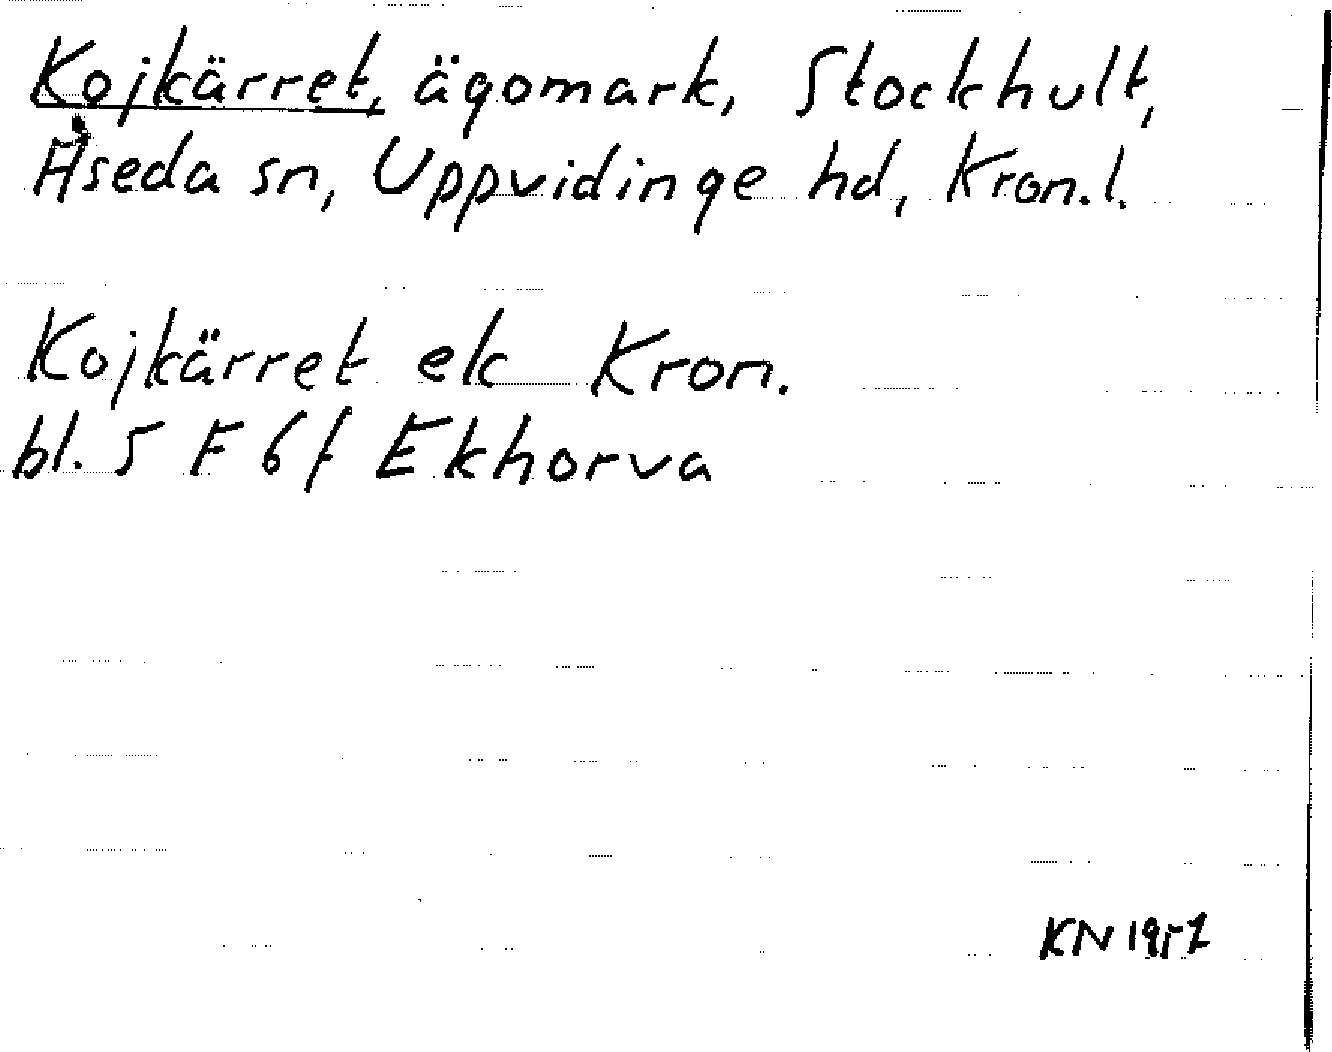 Kojkärret, ägomark, Stockhult,
Åseda sn, Uppvidinge hd, Kron.l.
Kojkärret ek Kron.
bl. 5 F 6 f Ekhorva
KN 1957